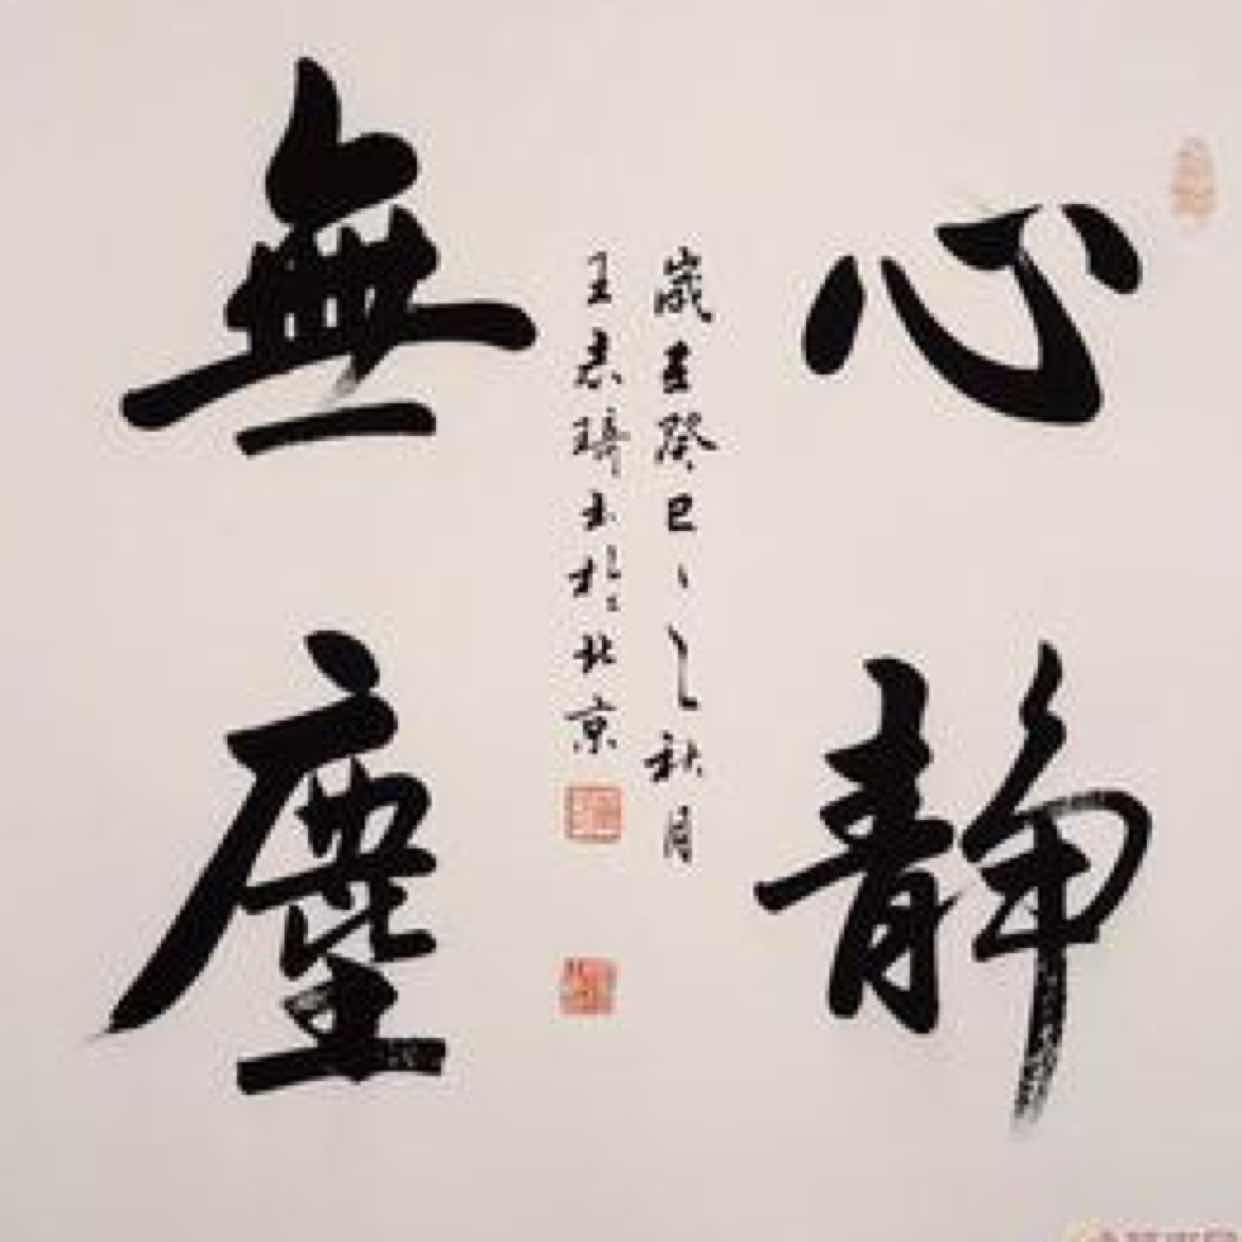 心靜
歲在癸巳之秋月
王志琦書於北京
無塵